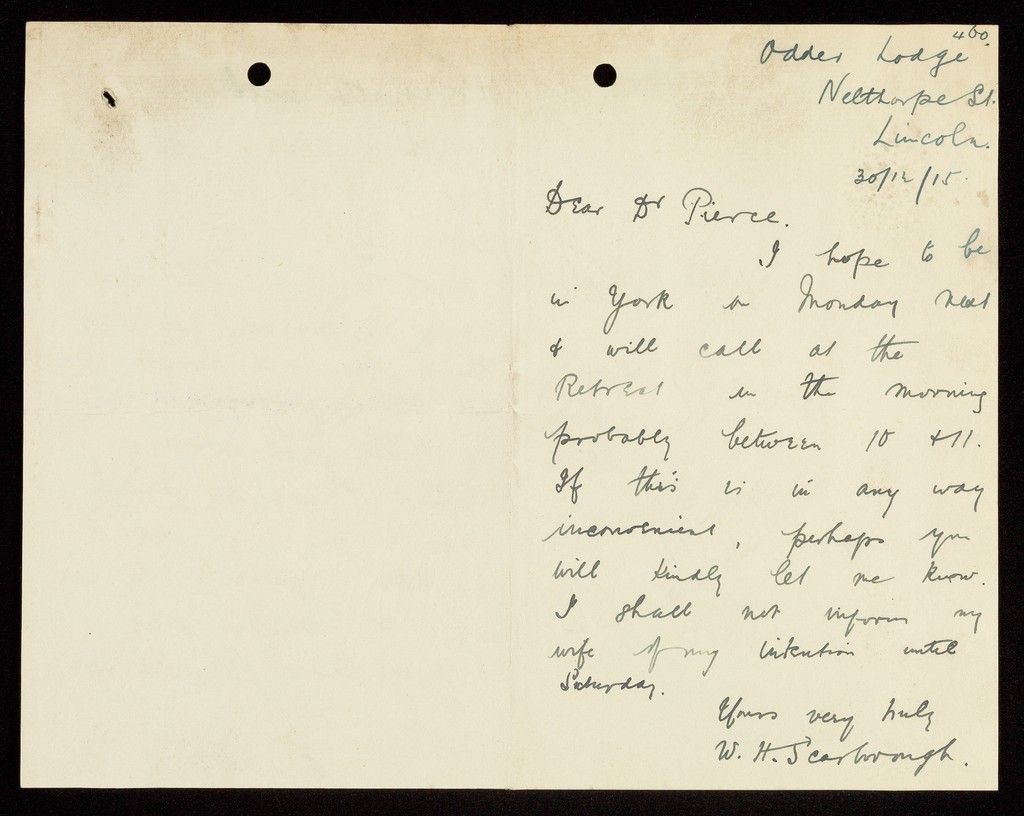 460.
Odder Lodge
Nelthorpe St.
Lincoln.
30/12/15.
Dear Dr Pierce.
I hope to be
in York on Monday next
& will call at the
Retreat in the morning
probably between 10 & 11.
If this is in any way
inconvenient, perhaps you
will kindly let me know.
I shall not inform my
wife of my intention until
Saturday.
Yours very truly
W. H. Scarborough.